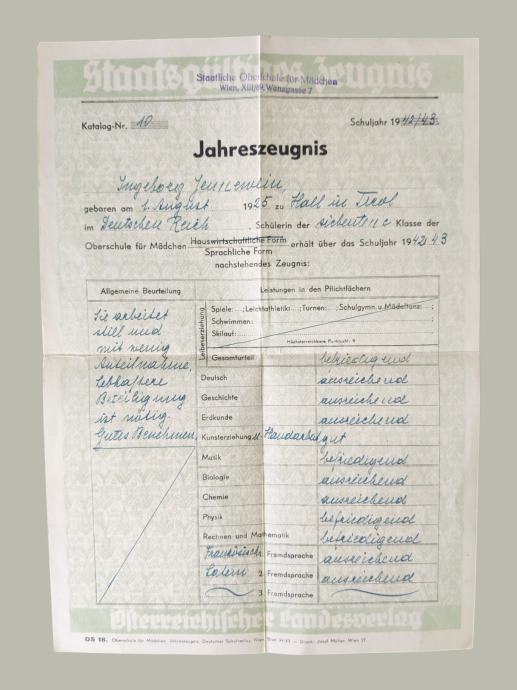 Staatsgültiges Zeugnis
Staatliche Oberschule für Mädchen
Wien, XIII/89, Wenzgasse 7
Katalog-Nr. 10 Schuljahr 1942/43
Jahreszeugnis
Ingeborg
geboren am 1. August 1925 zu Hall in Tirol
im Deutschen Reich, Schülerin der siebenten c Klasse der
Oberschule für Mädchen Hauswirtschaftliche Form erhält über das Schuljahr 1942/43
Sprachliche Form
nachstehendes Zeugnis:
Allgemeine Beurteilung
Sie arbeitet
still und
mit wenig
Anteilnahme,
lebhaftere
Beteiligung
ist nötig.
Gutes Benehmen.
Leistungen in den Pflichtfächern
Leibeserziehung
Spiele: ; Leichtathletik: ; Turnen: ; Schulgymn. u. Mädeltanz: ;
Schwimmen: ;
Skilauf: ;
Höchsterreichbare Punktzahl: 9
Gesamturteil befriedigend
Deutsch ausreichend
Geschichte ausreichend
Erdkunde ausreichend
Kunsterziehung u. Handarbeit gut
Musik befriedigend
Biologie ausreichend
Chemie ausreichend
Physik befriedigend
Rechnen und Mathematik befriedigend
Französisch Fremdsprache ausreichend
Latein 2. Fremdsprache ausreichend
3. Fremdsprache
Österreichischer Landesverlag
DS 18. Oberschule für Mädchen, Jahreszeugnis. Deutscher Schulverlag, Wien — Druck: Josef Müller, Wien